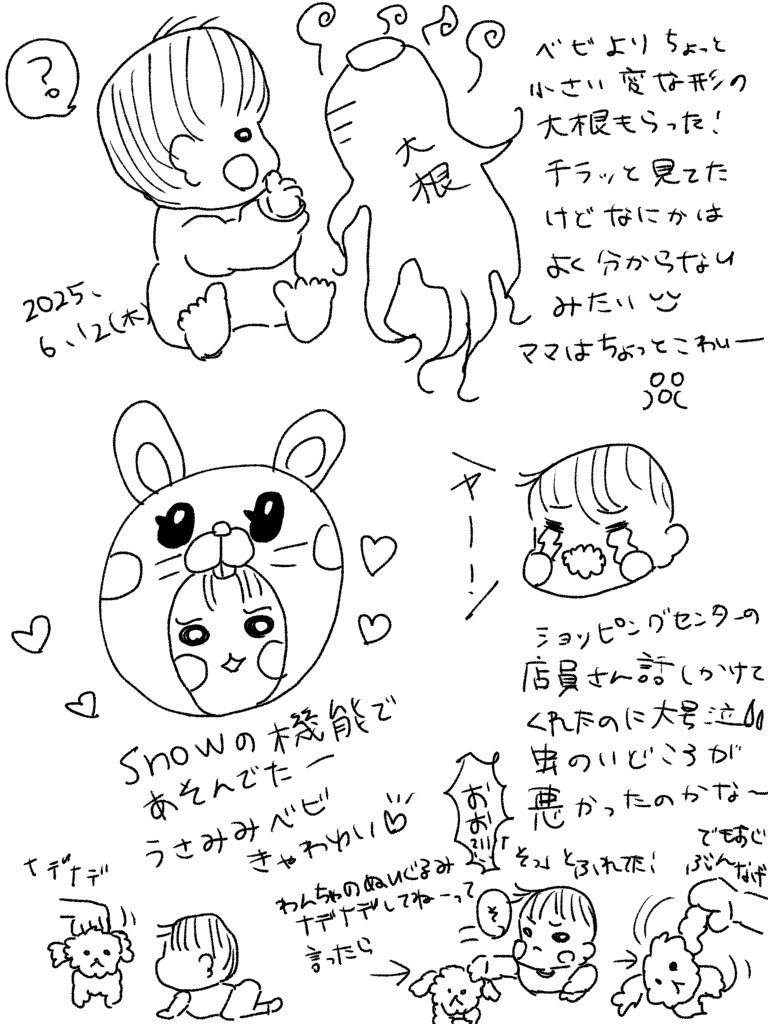 ?
ベビよりちょっと
小さい変な形の
大根もらった!
チラッと見てた
けどなにかは
よく分からない
みたい
ママはちょっとこわいー
大
根
2025、
6、12(木)
ギャーン
ショッピングセンターの
店員さん話しかけて
くれたのに大号泣
虫のいどころが
悪かったのかな〜
snowの機能で
あそんでたー
うさみみベビ
きゃわわい♡
ナデナデ
わんちゃのぬいぐるみ
ナデナデしてねーって
言ったら
おお!!!
そっとふれてた!
そ
でもあと
ぶんなげ